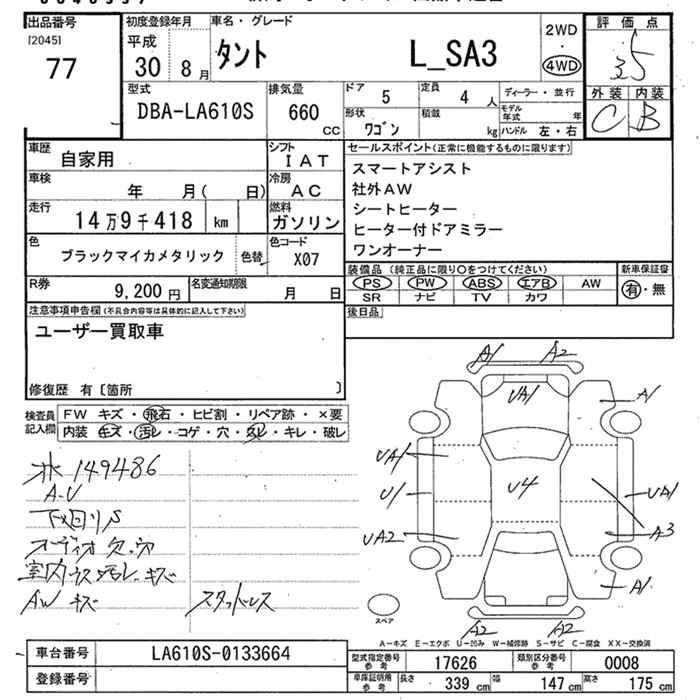 出品番号
[2045]
77
初度登録年月
平成
30年 8月
車名・グレード
タント L_SA3
2WD
・
4WD
評価点
3.5
外装 内装
C B
型式
DBA-LA610S
排気量
660 CC
ドア 5
定員 4人
形状 ワゴン
積載 kg
ディーラー・並行
モデル年式 年
ハンドル 左・右
車歴 自家用
シフト IAT
車検 年 月( 日)
冷房 AC
走行 14万9千418 km
燃料 ガソリン
色 ブラックマイカメタリック 色替
色コード X07
R券 9,200円
名変通知期限 月 日
セールスポイント(正常に機能するものに限ります)
スマートアシスト
社外AW
シートヒーター
ヒーター付ドアミラー
ワンオーナー
装備品 (純正品に限り○をつけてください)
PS PW ABS エアB AW
SR ナビ TV カワ
新車保証書
有・無
後日品
注意事項申告欄(不具合内容等は具体的に記入して下さい)
ユーザー買取車
修復歴 有〔箇所 〕
検査員記入欄
FW キズ・飛石・ヒビ割・リペア跡・×要
内装 キズ・汚レ・コゲ・穴・スレ・キレ・破レ
149486
A-U
下回りS
オーディオ欠.穴
室内ウス汚レ.キズ
AW キズ
スタッドレス
A1 A2
UA1
A1
UA1
U1
U4
UA1
UA2
A3
A1
A2 A2
スペア
A-キズ E-エクボ U-凹み W-補修跡 S-サビ C-腐食 XX-交換済
車台番号 LA610S-0133664
登録番号
型式指定番号参考 17626
類別区分番号参考 0008
車庫証明用参考 長さ 339cm 幅 147cm 高さ 175cm